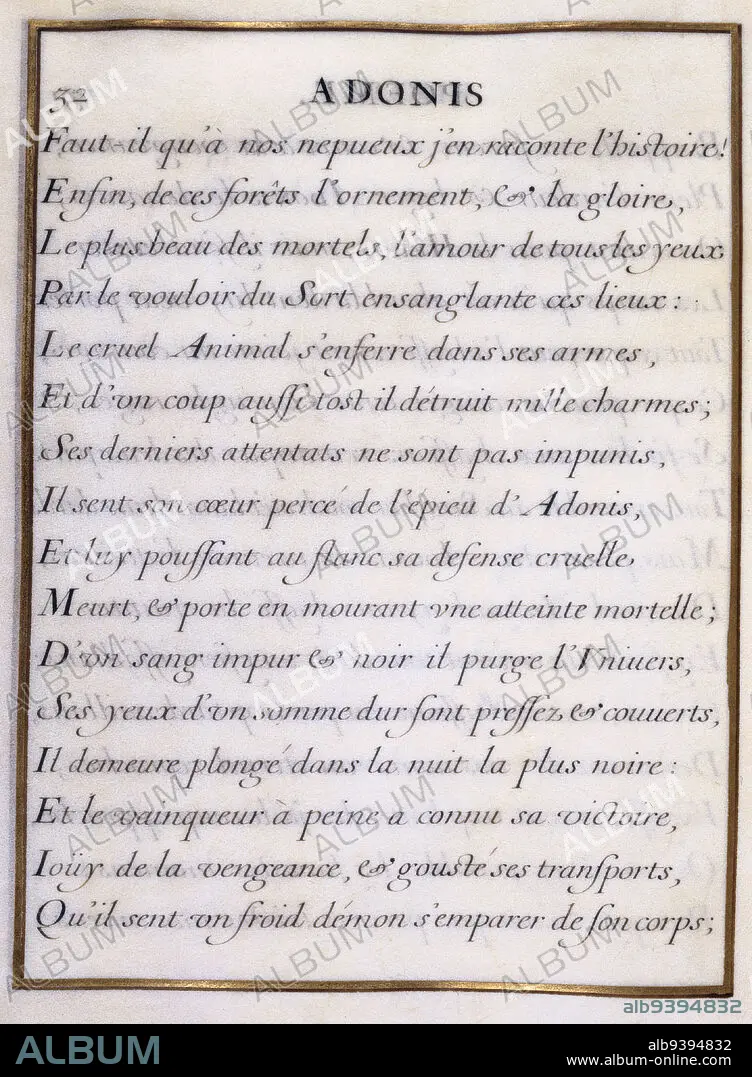 32
ADONIS
Faut-il qu'à nos nepueux j'en raconte l'histoire!
Enfin, de ces forêts l'ornement, & la gloire,
Le plus beau des mortels, l'amour de tous les yeux
Par le vouloir du Sort ensanglante ces lieux :
Le cruel Animal s'enferre dans ses armes,
Et d'vn coup auſſi tost il détruit mille charmes;
Ses derniers attentats ne sont pas impunis,
Il sent son cœur percé de l'épieu d'Adonis,
Et luy pouſſant au flanc sa defense cruelle
Meurt, & porte en mourant vne atteinte mortelle;
D'vn sang impur & noir il purge l'Vniuers,
Ses yeux d'vn somme dur ſont preſſez & couuerts,
Il demeure plongé dans la nuit la plus noire :
Et le vainqueur à peine a connu sa victoire,
Ioüy de la vengeance, & gousté ses tranſports,
Qu'il sent vn froid démon s'emparer de ſon corps;
ALBUM
alb9394832
ALBUM
alb9394832
www.album-online.com